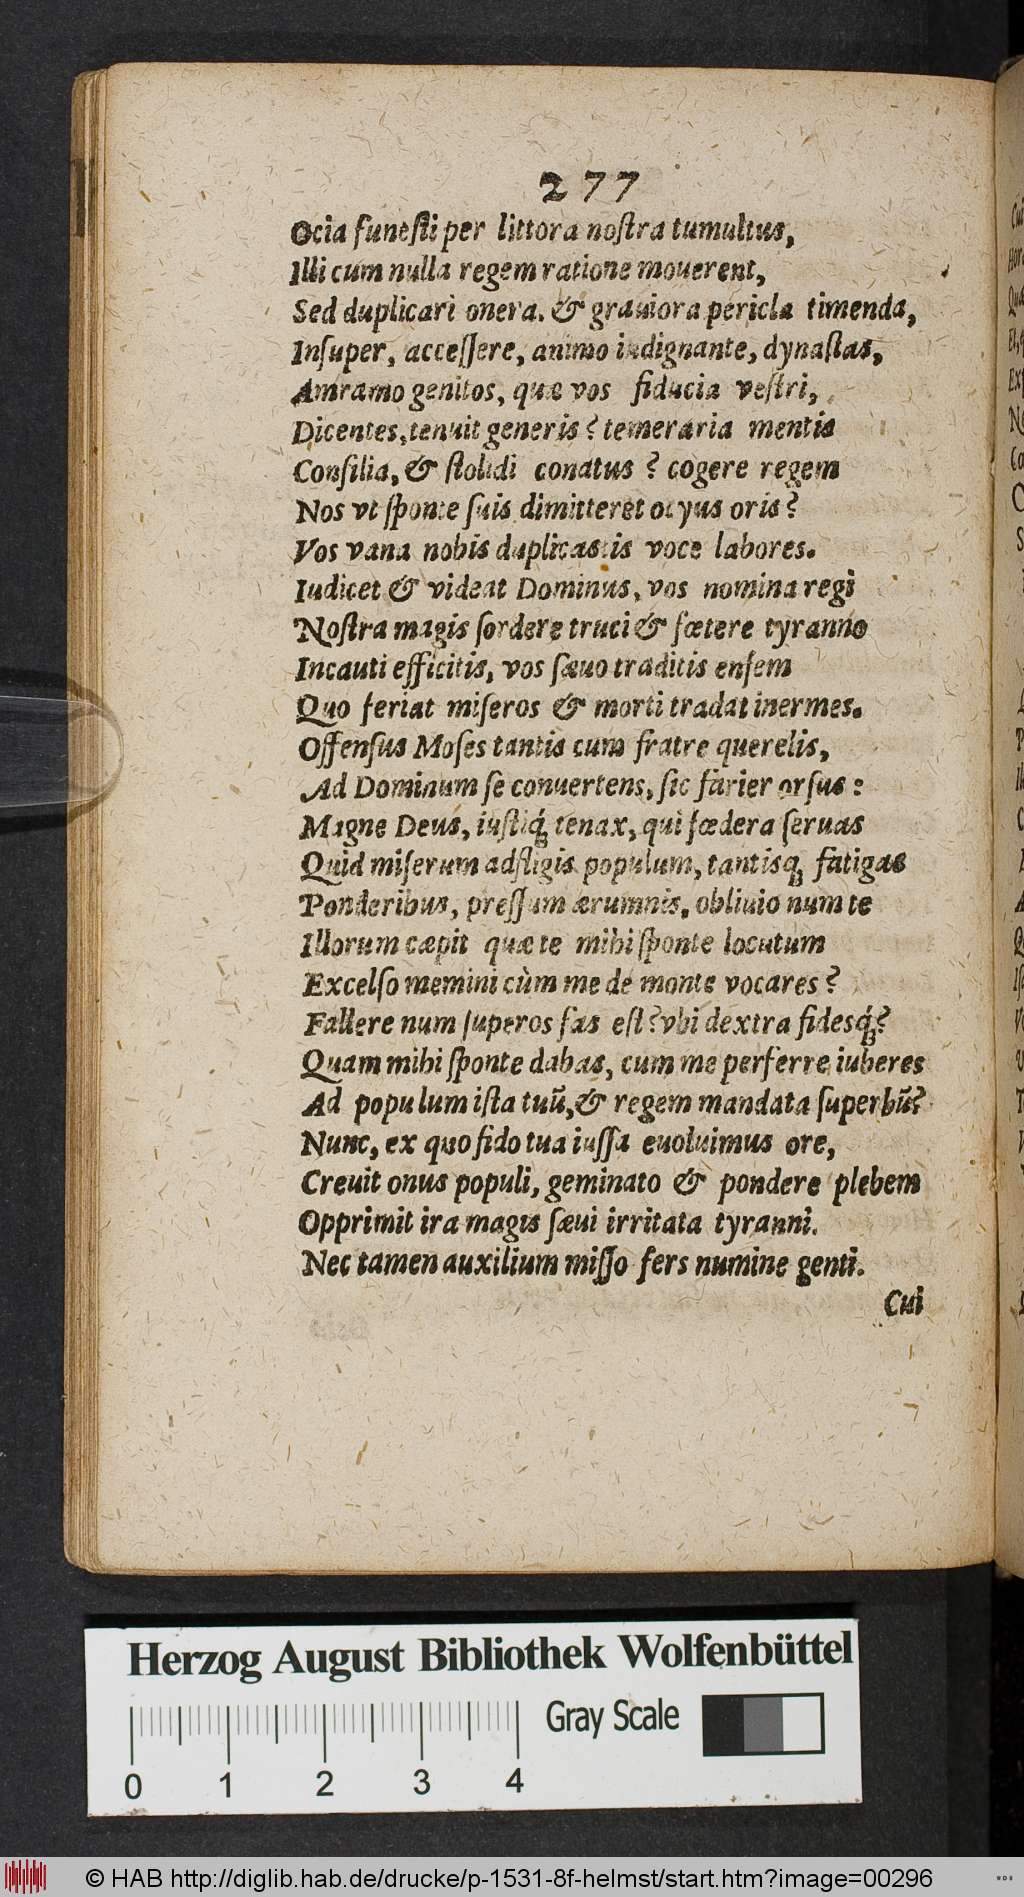 277
Ocia funeſti per littora noſtra tumultus,
Illi cum nulla regem ratione mouerent,
Sed duplicari onera. & grauiora pericla timenda,
Inſuper, acceſſere, animo indignante, dynaſtas,
Amramo genitos, quæ vos fiducia veſtri,
Dicentes, tenuit generis? temeraria mentis
Conſilia, & ſtolidi conatus? cogere regem
Nos vt ſponte ſuis dimitteret ocyus oris?
Vos vana nobis duplicastis voce labores.
Iudicet & videat Dominus, vos nomina regi
Noſtra magis ſordere truci & fœtere tyranno
Incauti efficitis, vos ſæuo traditis enſem
Quo feriat miſeros & morti tradat inermes.
Offenſus Moſes tantis cum fratre querelis,
Ad Dominum ſe conuertens, ſic farier orſus:
Magne Deus, iuſtiq́; tenax, qui fœdera ſeruas
Quid miſerum adfligis populum, tantisq; fatigas
Ponderibus, preſſum ærumnis, obliuio num te
Illorum cæpit quæ te mihi ſponte locutum
Excelſo memini cùm me de monte vocares?
Fallere num ſuperos fas eſt? vbi dextra fidesq́;?
Quam mihi ſponte dabas, cum me perferre iuberes
Ad populum iſta tuũ, & regem mandata ſuperbũ?
Nunc, ex quo fido tua iuſſa euoluimus ore,
Creuit onus populi, geminato & pondere plebem
Opprimit ira magis ſæui irritata tyranni.
Nec tamen auxilium miſſo fers numine genti.
Cui
Herzog August Bibliothek Wolfenbüttel
Gray Scale
0 1 2 3 4
© HAB http://diglib.hab.de/drucke/p-1531-8f-helmst/start.htm?image=00296